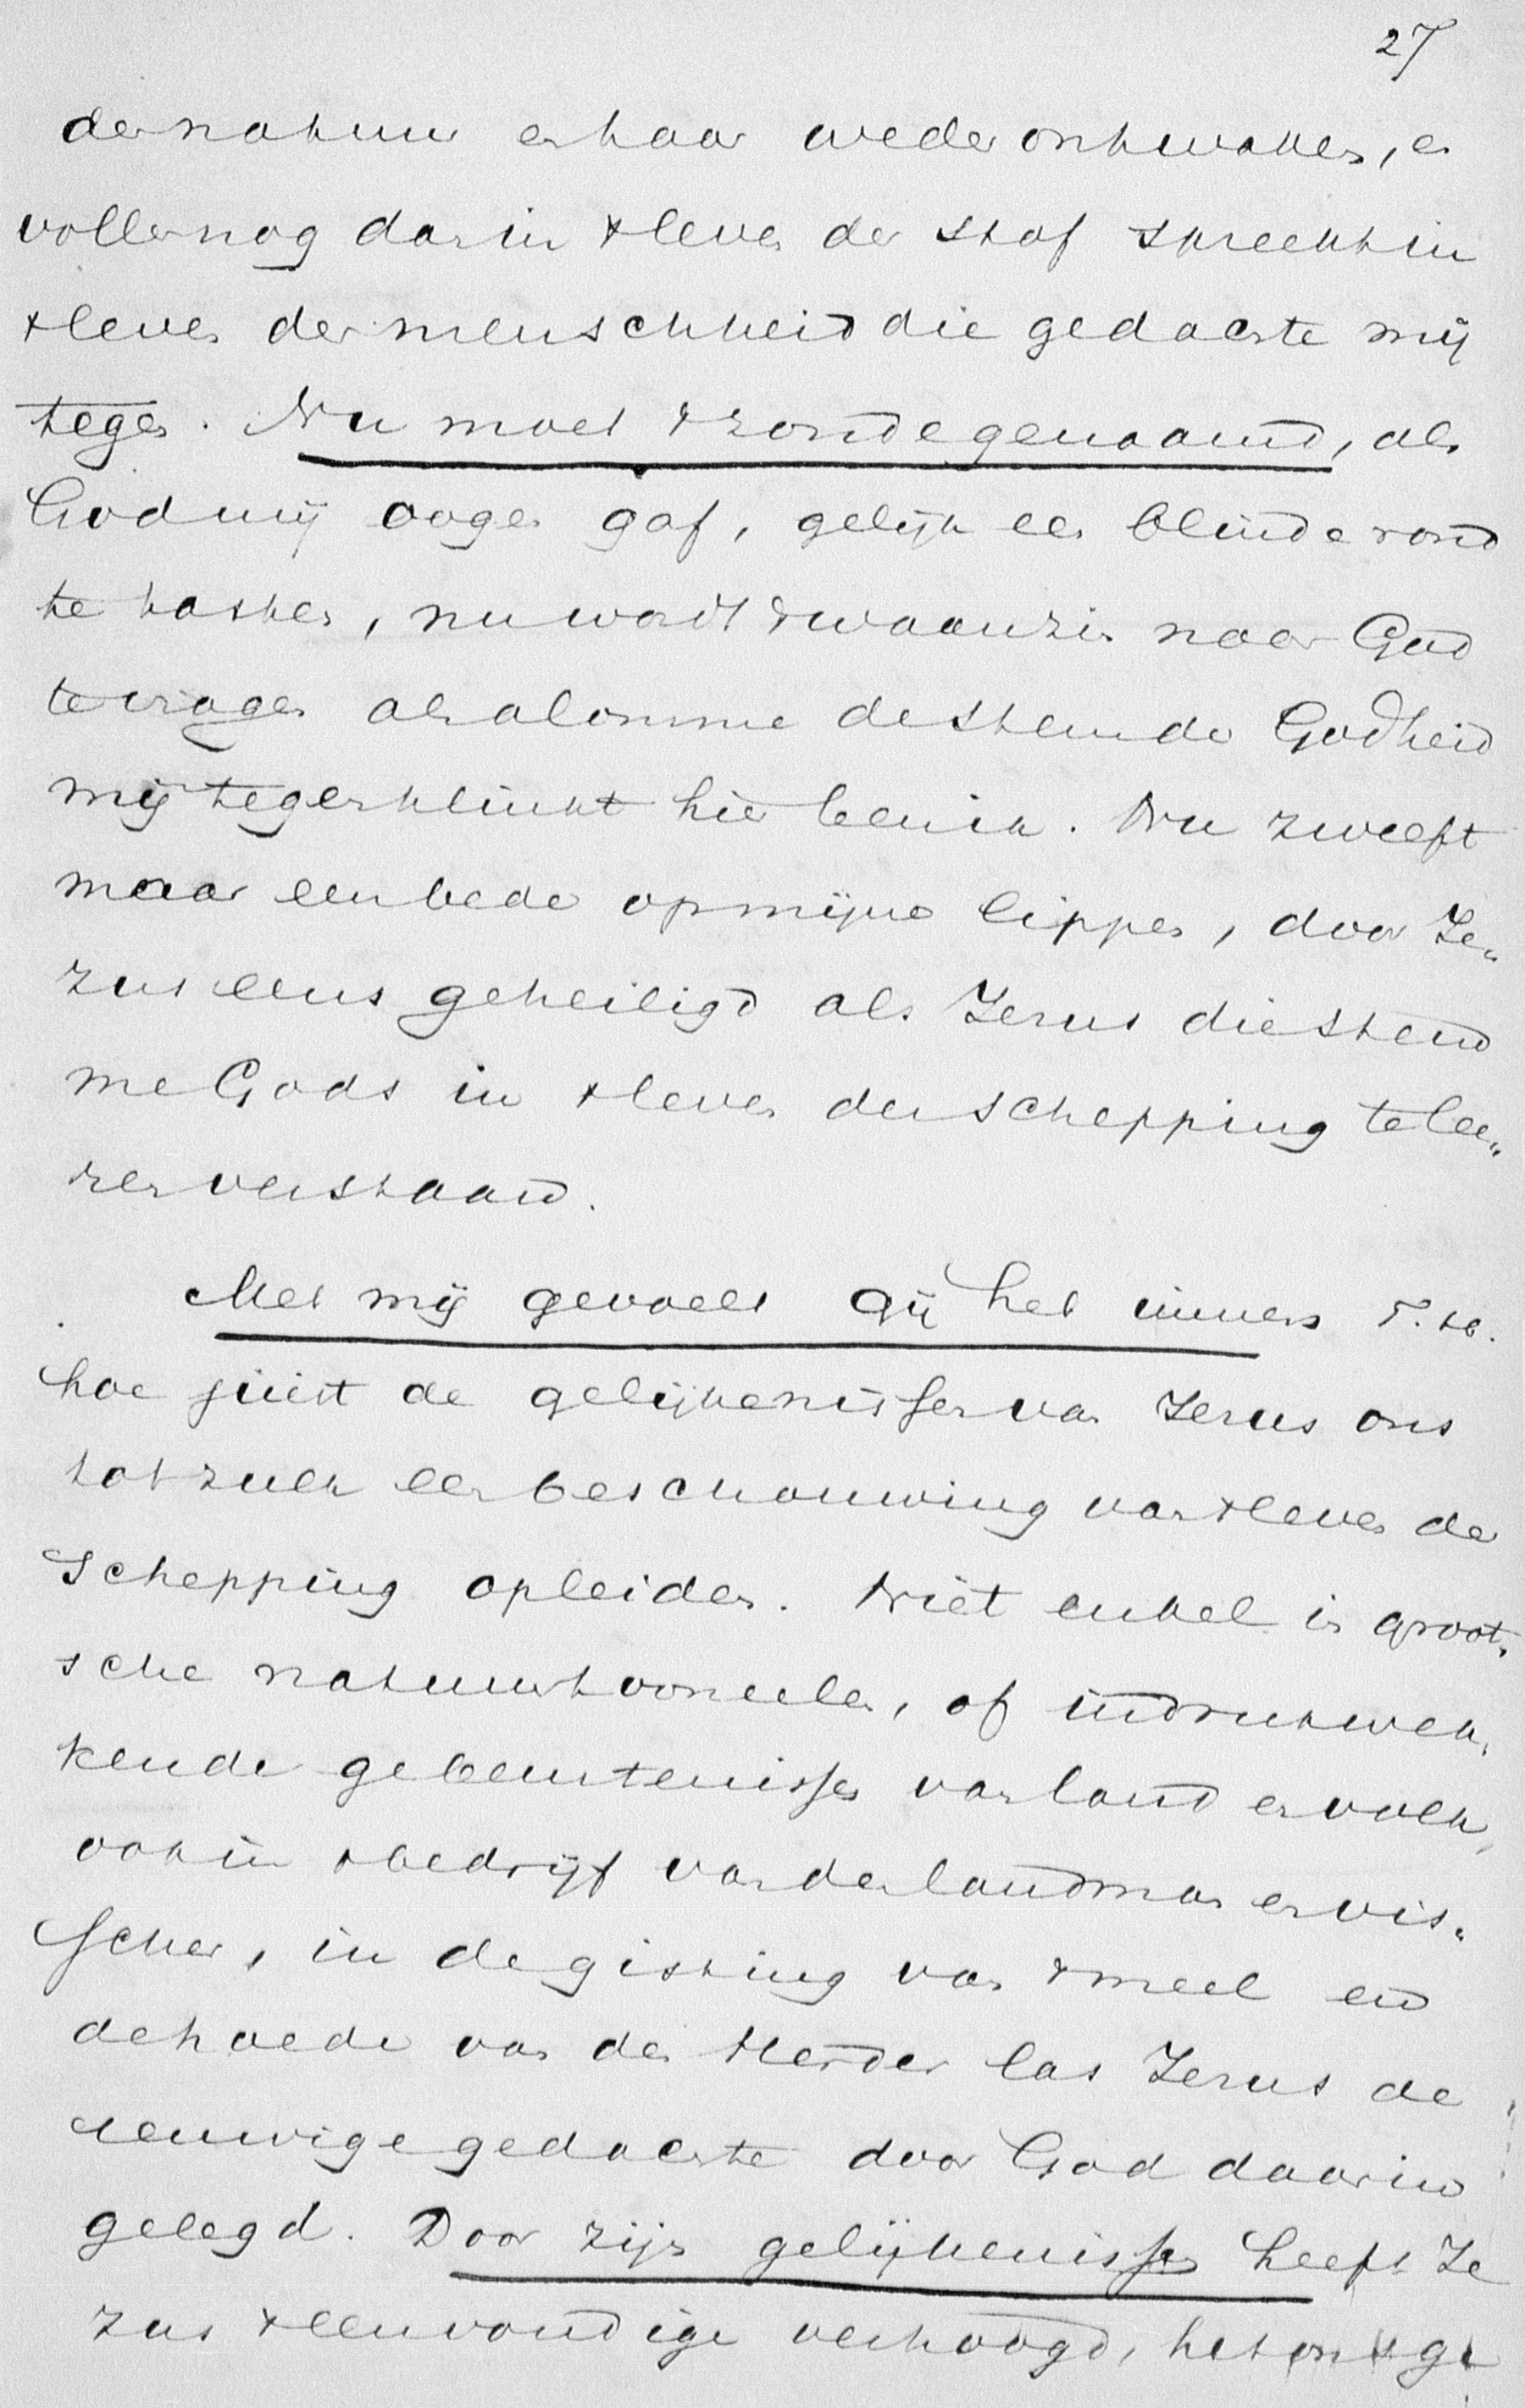 27
der natuur en haar weder ontwaken, en
voller nog dan in 't leven der stof spreekt in
't leven der menschheid die gedachte mij
tegen. Nu moet 't zonde genaamd, als
God mij oogen gaf, gelijk een blinde rond
te tasten, nu wordt 't waanzin naar God
te vragen als alomme de stem der Godheid
mij tegenklinkt hier ben ik. Nu zweeft
maar een bede op mijne lippen, door Je„
zus eens geheiligd als Jezus die stem
me Gods in 't leven der schepping te lee„
ren verstaan.
Met mij gevoelt gij het immers T. H.
hoe juist de gelijkenissen van Jezus ons
tot zulk een beschouwing van 't leven der
schepping opleiden. Niet enkel in groot„
sche natuurtooneelen, of indrukwek„
kende gebeurtenissen van land en volk,
ook in 't bedrijf van den landman en vis„
scher, in de gisting van 't meel en
de hoede van den Herder las Jezus de
eeuwige gedachte door God daarin
gelegd. Door zijn gelijkenissen heeft Je
zus 't eenvoudige verhoogd, het